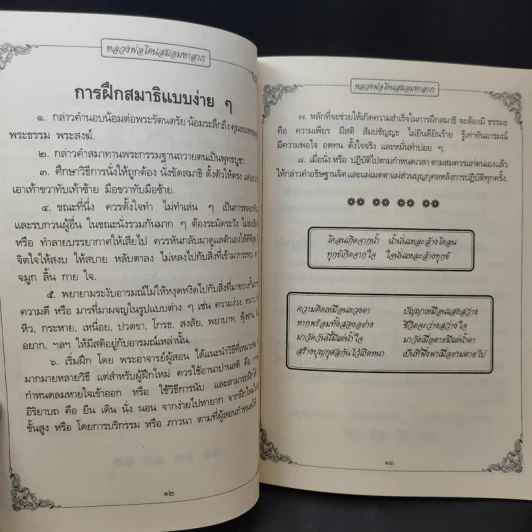 การฝึกสมาธิแบบง่าย ๆ
๑. กล่าวคำนอบน้อมต่อพระรัตนตรัย น้อมระลึกถึง คุณของพระพุทธ
พระธรรม พระสงฆ์.
๒. กล่าวคำสมาทานพระกรรมฐานถวายตนเป็นพุทธบูชา.
๓. ศึกษาวิธีการนั่งให้ถูกต้อง นั่งขัดสมาธิ ตั้งตัวให้ตรง
เอาเท้าขวาทับเท้าซ้าย มือขวาทับมือซ้าย.
๔. ขณะที่นั่ง ควรตั้งใจทำ ไม่ทำเล่น ๆ เป็นการ
และรบกวนผู้อื่น ในขณะนั่งรวมกันมาก ๆ ต้องระมัดระวัง
หรือ ทำลายบรรยากาศให้เสียไป ควรหันกลับมาดูแลตัวเองให้ดี
จิตใจให้สงบ ให้สบาย หลับตาลง ไม่หลงไปกับสิ่งที่เข้ามากระทบ
จมูก ลิ้น กาย ใจ.
๕. พยายามระงับอารมณ์ไม่ให้หงุดหงิดไปกับสิ่งที่
ความดี หรือ มารที่มาผจญในรูปแบบต่าง ๆ เช่น ความง่วง,
หิว, กระหาย, เหนื่อย, ปวดขา, โกรธ, สงสัย, พยาบาท, ฟุ้งซ่าน,
อยาก, ฯลฯ ให้มีสติอยู่กับอารมณ์เหล่านั้น.
๖. เริ่มฝึก โดย พระอาจารย์ผู้สอน ได้แนะนำวิธีที่เหมาะสม
มากมายหลายวิธี แต่สำหรับผู้ฝึกใหม่ ควรใช้อานาปานสติ คือ
กำหนดลมหายใจเข้าออก หรือ ใช้วิธีการนับ และสามารถฝึกได้
อิริยาบถ คือ ยืน เดิน นั่ง นอน จากง่ายไปหายาก จากฝึกใหม่
ขั้นสูง หรือ โดยการบริกรรม หรือ ภาวนา ตามที่ผู้สอนกำหนดให้
๑๒
๗. หลักที่จะช่วยให้เกิดความสำเร็จในการฝึกสมาธิ จะต้องมี ธรรมะ
คือ ความเพียร มีสติ สัมปชัญญะ ไม่ยินดียินร้าย รู้เท่าทันอารมณ์
มีความพอใจ อดทน ตั้งใจจริง และหมั่นทำบ่อย ๆ.
๘. เมื่อนั่ง หรือ ปฏิบัติไปตามกำหนดเวลา ตามสมควรแก่ตนเองแล้ว
ให้กล่าวคำอธิษฐานจิต และแผ่เมตตาแผ่ส่วนบุญกุศลหลังการปฏิบัติทุกครั้ง.
โคลนเกิดจากน้ำ น้ำนั่นแหละล้างโคลน
ทุกข์เกิดจากใจ ใจนั่นแหละล้างทุกข์
ความคิดเหมือนดวงตา ปัญญาเหมือนแสงสว่าง
หากพร้อมทั้งสองอย่าง ชีวิตจะสว่างสว่างใจ
๑๓